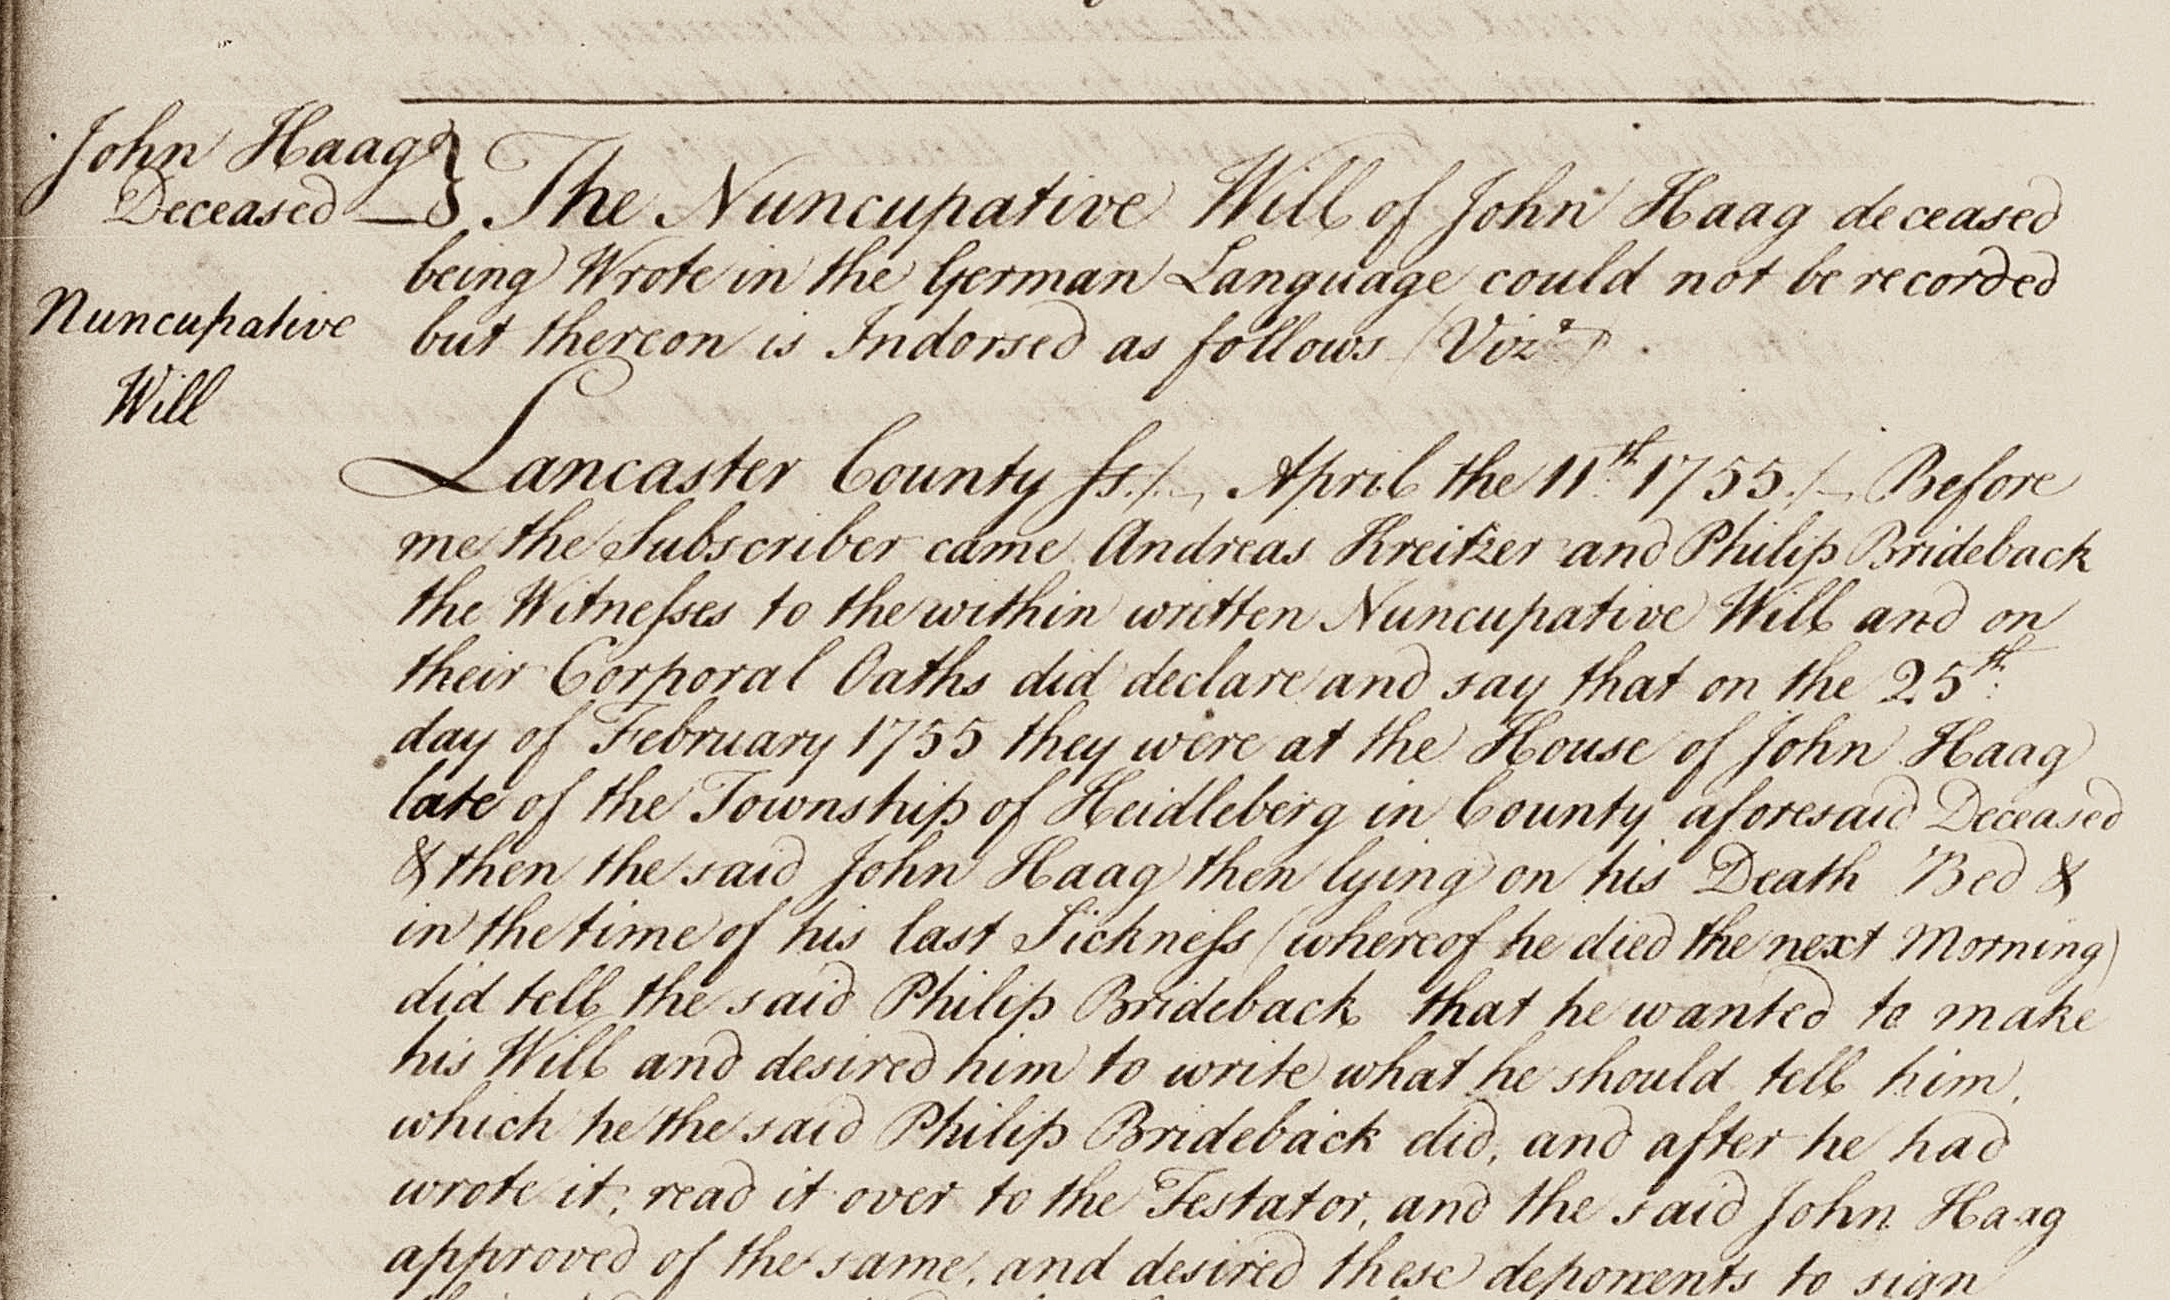 John Haag
Deceased
Nuncupative
Will
The Nuncupative Will of John Haag deceased
being Wrote in the German Language could not be recorded
but thereon is Indorsed as follows (Vizt)
Lancaster County ss./. April the 11th 1755./. Before
me the Subscriber came Andreas Kreitzer and Philip Brideback
the Witnesses to the within written Nuncupative Will and on
their Corporal Oaths did declare and say that on the 25th
day of February 1755 they were at the House of John Haag
late of the Township of Heidleberg in County aforesaid Deceased
& then the said John Haag then lying on his Death Bed &
in the time of his last Sickness (whereof he died the next Morning)
did tell the said Philip Brideback that he wanted to make
his Will and desired him to write what he should tell him,
which he the said Philip Brideback did, and after he had
wrote it, read it over to the Testator, and the said John Haag
approved of the same, and desired these deponents to sign